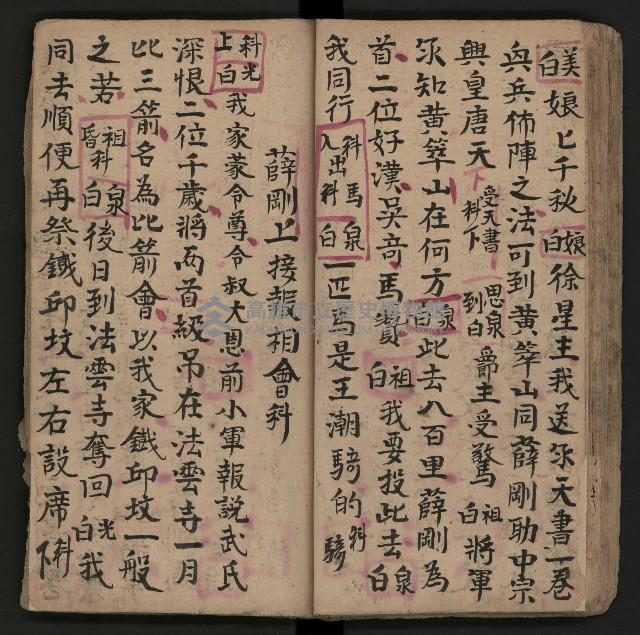 白美娘七千秋白娘徐星主我送氶天書一卷
與兵佈陣之法可到黃箄山同薛剛助中宗
興皇唐天下受天書科下思泉到白爺主受驚白祖將軍
氶知黃箄山在何方白泉此去八百里薛剛為
首二位好漢吳竒馬贊白祖我要投此去白泉
我同行科馬入出科白泉一匹馬是王潮騎的科騎
薛剛上接報相會科
科光上白我家蒙令尊令叔大恩前小軍報說武氏
深恨二位千歲將両首級吊在法雲寺一月
比三箭名為比箭會以我家鐵邱坟一般
之若祖看科白泉後日到法雲寺奪回白光我
同去順便再祭鐵邱坟左右設席科下
高雄市立歷史博物館